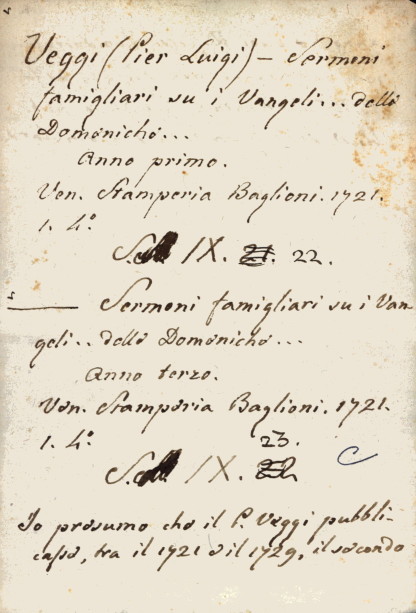 Veggi (Pier Luigi) – Sermoni
famigliari su i Vangeli... delle
Domeniche...
Anno primo.
Ven. Stamperia Baglioni. 1721.
1. 4.°
IX. 22.
— Sermoni famigliari su i Van-
geli.. delle Domeniche...
Anno terzo.
Ven. Stamperia Baglioni. 1721.
1. 4.°
23.
IX.
C
Io presumo che il P. Veggi pubbli-
casse, tra il 1721 e il 1729, il secondo